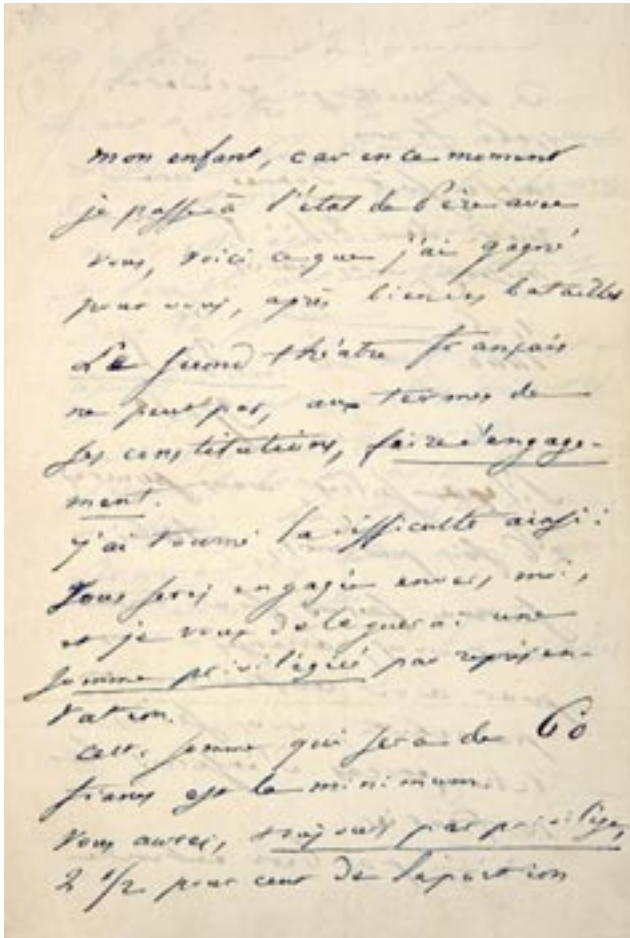 mon enfant, car en ce moment
je passe à l'état de Père avec
vous, voici ce que j'ai gagné
pour vous, après bien des batailles
Le second théâtre français
ne peut pas, aux termes de
ses constitutions, faire d'engage-
ment.
J'ai tourné la difficulté ainsi :
Vous serez engagée envers moi,
et je vous déléguerai une
somme privilégiée par représen-
tation.
Cette somme qui sera de 60
francs est le minimum
Vous aurez, toujours par privilège,
2 1/2 pour cent de la portion